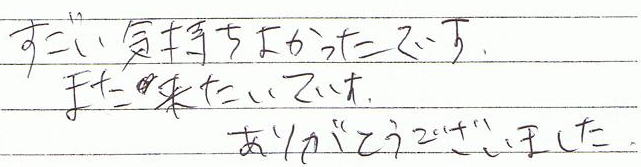 すごい気持ちよかったです.
また来たいです.
ありがとうございました